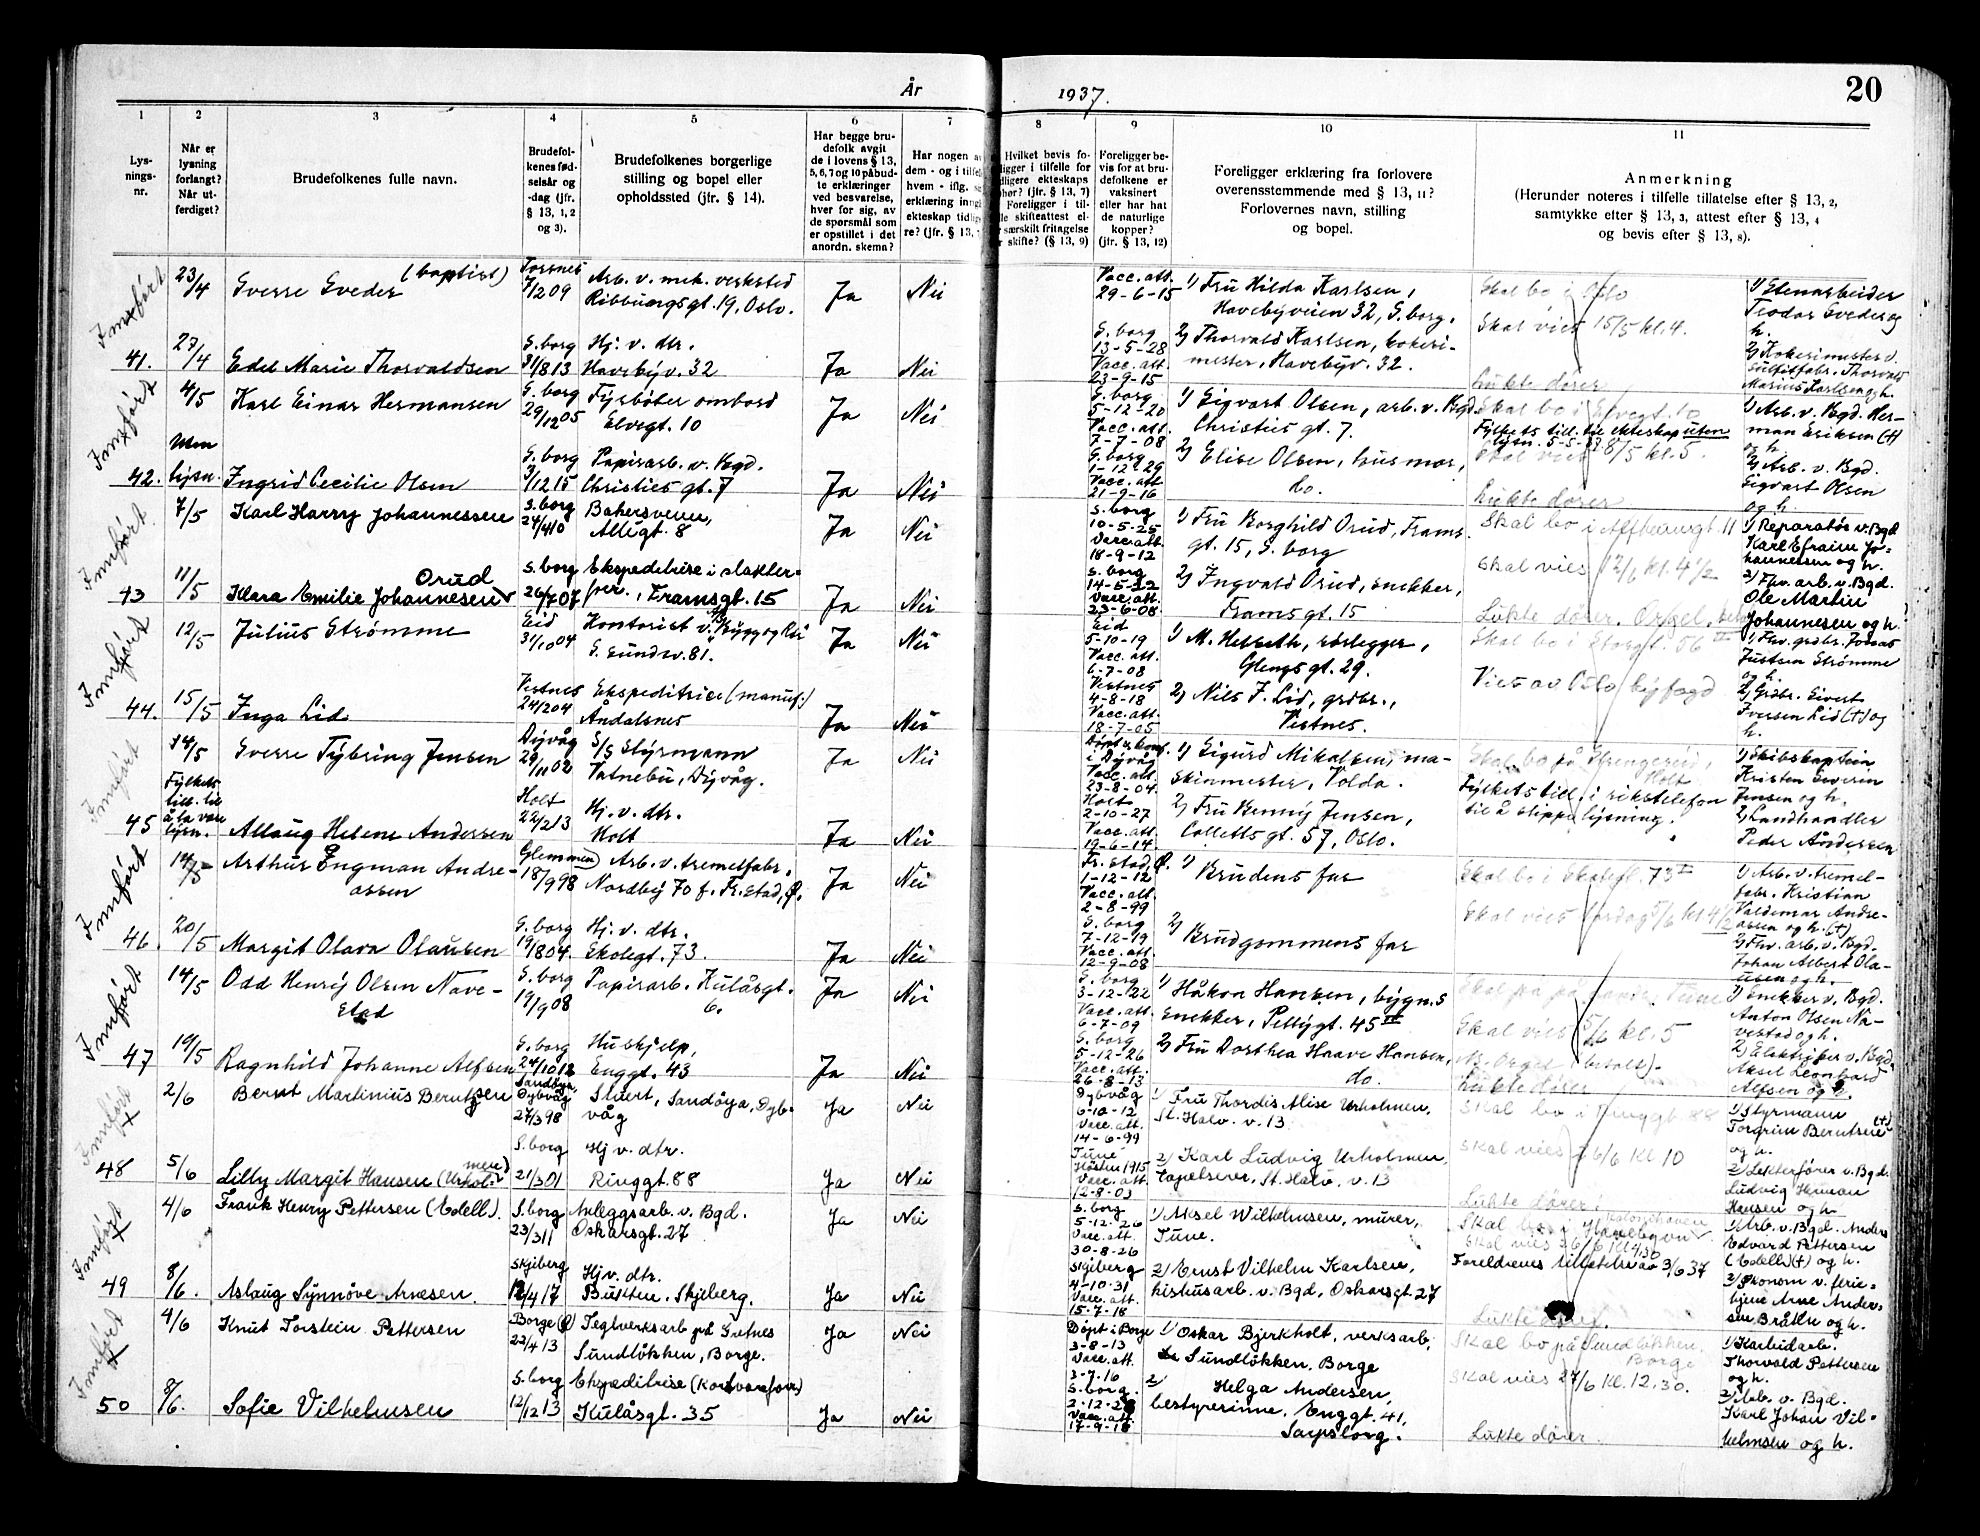 År 1937.
20
1 2 3 4 5 6 7 8 9 10 11
Lys-
nings-
nr.
Når er
lysning
forlangt?
Når ut-
ferdiget?
Brudefolkenes fulle navn.
Brudefol-
kenes fød-
selsår og
-dag (jfr.
§ 13, 1, 2
og 3).
Brudefolkenes borgerlige
stilling og bopel eller
opholdssted (jfr. § 14).
Har begge bru-
defolk avgit
de i lovens § 13,
5, 6, 7 og 10 påbud-
te erklæringer
ved besvarelse,
hver for sig, av
de spørsmål som
er opstillet i det
anordn. skema?
Har nogen av
dem - og i tilfelle
hvem - iflg. 
erklæring inng
ekteskap tidlig
re? (jfr. § 13,
Hvilket bevis fo-
ligger i tilfelle for
dligere ekteskaps
hør? (jfr. § 13, 7)
Foreligger i til-
le skifteattest el-
særskilt fritagelse
skifte? (§ 13, 9)
Foreligger be-
vis for at bru-
defolkene er
vaksinert
eller har hat
de naturlige
kopper?
(jfr. § 13, 12)
Foreligger erklæring fra forlovere
overensstemmende med § 13, 11?
Forlovernes navn, stilling
og bopel.
Anmerkning
(Herunder noteres i tilfelle tillatelse efter § 13, 2,
samtykke efter § 13, 3, attest efter § 13, 4
og bevis efter § 13, 8).
Innført
23/4
Sverre Sveder (baptist)
Torsnes
7/2 09
Arb. v. mek. verksted
Ribbungsgt. 19, Oslo.
Ja
Nei
Vacc. att.
29-6-15
1) Fru Hilda Karlsen,
Havebyveien 32, S.borg.
Skal bo i Oslo
Skal vies 15/5 kl. 4.
1) Stenarbeider
Teodor Sveder og
h.
41.
27/4
Edel Marie Thorvaldsen
S.borg
31/8 13
Hj. v. dtr.
Havebyv. 32
Ja
Nei
S.borg
13-5-28
Vacc. att.
23-9-15
2) Thorvald Karlsen, kokeri-
mester, Havebyv. 32.
Lukte dører
2) Kokerimester v.
Sulfitfabr. Thorvald
Marius Karlsen og h.
Innført
4/5
Karl Einar Hermansen
S.borg
29/12 05
Fyrbøter ombord
Elvegt. 10
Ja
Nei
S.borg
5-12-20
Vacc. att.
7-7-08
1) Sigvart Olsen, arb. v. Bgd.
Christies gt. 7.
Skal bo i Elvegt. 10
Fylkets till. til ekteskap uten
lysn. 5-5-37
Skal vies 8/5 kl. 5.
1) Arb. v. Bgd. Her-
man Eriksen (†)
og h.
42.
Uten
lysn.
Ingrid Cecilie Olsen
S.borg
3/12 15
Papirarb. v. Bgd.
Christies gt. 7
Ja
Nei
S.borg
1-12-29
Vacc. att.
21-9-16
2) Elise Olsen, husmor,
do.
Lukte dører
2) Arb. v. Bgd.
Sigvart Olsen
og h.
Innført
7/5
Karl Harry Johannessen
S.borg
24/4 10
Bakersvenn,
Allégt. 8
Ja
Nei
S.borg
10-5-25
Vacc. att.
18-9-12
1) Fru Borghild Orud, Frams-
gt. 15, S.borg
Skal bo i 11
Skal vies 12/6 kl. 4 1/2
1) Reparatør v. Bgd.
Karl Efraim Jo-
hannessen og h.
43
11/5
Klara Emilie Johannesen Orud
S.borg
26/7 07
Ekspeditrise i slakter-
forr., Framsgt. 15
Ja
Nei
S.borg
14-5-22
Vacc. att.
23-6-08
2) Ingvald Orud, snekker,
Framsgt. 15
Lukte dører. Orgel.
2) Fhv. arb. v. Bgd.
Ole Martin
Johannesen og h.
Innført
12/5
Julius Strømme
Eid
31/10 04
Kontorist v.
S. Sundsv. 81.
Ja
Nei
Eid
5-10-19
Vacc. att.
6-7-08
1) M. Helseth, rørlegger,
Glengsgt. 29.
Skal bo i Storgt. 56
1) Fhv. grdbr. Jonas
Justsen Strømme
og h.
44.
15/5
Inga Lid
Vestnes
24/2 04
Ekspeditrice (manuf.)
Åndalsnes
Ja
Nei
Vestnes
4-8-18
Vacc. att.
18-7-05
2) Nils J. Lid, grdbr.,
Vestnes.
Vies av Oslo byfogd
2) Grdbr. Sivert
Iversen Lid (†) og
h.
Innført
14/5
Sverre Tybring Jensen
Dyvåg
29/11 02
S/S Styrmann
Vatnebu, Dyvåg.
Ja
Nei
Døpt & konf.
i Dyvåg
Vacc. att.
23-8-04.
1) Sigurd Mikalsen, ma-
skinmester, Volda.
Skal bo på Strengereid,
Holt
1) Skibskaptein
Kristen Severin
Jensen og h.
45
Fylkets
till. til
å la være
lysn.
Allaug Helene Andersen
Holt
22/2 13
Hj. v. dtr.
Holt
Ja
Nei
Holt
2-10-27
Vacc. att.
19-6-14
2) Fru Benny Jensen,
Colletts gt. 57, Oslo.
Fylkets till. i rikstelefon
til å slippe lysning.
2) Landhandler
Peder Andersen
Innført
14/5
Arthur Engman Andre-
assen
Glemmen
18/9 98
Arb. v. tremelfabr.
Nordby 70 f. Fr.stad, Ø.
Ja
Nei
Fr.stad, Ø.
1-12-12
Vacc. att.
2-8-99
1) Brudens far
Skal bo i Skolegt. 73 II
Skal vies lørdag 5/6 kl 4 1/2
1) Arb. v. tremel-
fabr. Kristian
Valdemar Andre-
assen og h. (†)
46.
20/5
Margit Olava Olausen
S.borg
19/8 04.
Hj. v. dtr.
Skolegt. 73
Ja
Nei
S.borg
7-12-19
Vacc. att.
12-9-08
2) Brudgommens far
2) Fhv. arb. v. Bgd.
Johan Albert Ola-
usen og h.
Innført
14/5
Odd Henry Olsen Nave-
stad
S.borg
19/9 08
Papirarb. Kulåsgt.
6.
Ja
Nei
S.borg
3-12-22
Vacc. att.
6-7-09
1) Håkon Hansen, bygn.s
snekker, Pettygt. 45 IV
Tune
Skal vies 5/6 kl. 5
1) Snekker v. Bgd.
Anton Olsen Na-
vestad og h.
47
19/5
Ragnhild Johanne Alfsen
S.borg
24/10 12
Hushjelp,
Enggt. 43
Ja
Nei
S.borg
5-12-26
Vacc. att.
26-8-13
2) Fru Dorthea Haave Hansen,
do.
Lukte dører
2) Elektriker v. Bgd.
Aksel Leonhard
Alfsen og h.
Innført
2/6
Bernt Martinius Berntsen
Sandøya,
Dybvåg
27/3 98
Stuert, Sandøya, Dyb-
våg
Ja
Nei
Dybvåg
6-10-12
Vacc. att.
14-6-99
1) Fru Thordis Alise Urholmen,
St. Halv. v. 13
Skal bo i Ringgt. 88
Skal vies 26/6 kl 10
1) Styrmann
Torgrim Berntsen (†)
og h.
48
5/6
Lilly Margit Hansen (Urhol-
men)
S.borg
21/3 01
Hj v. dtr.
Ringgt. 88
Ja
Nei
Tune
Høsten 1915
Vacc. att.
12-8-03
2) Karl Ludvig Urholmen,
tapetserer, St. Halv. v. 13
Lukte dører
2) Lekterfører v. Bgd.
Ludvig Herman
Hansen og h.
Innført
4/6
Frank Henry Pettersen (Edell).
S.borg
23/3 11
Anleggsarb. v. Bgd.
Oskarsgt. 27
Ja
Nei
S.borg
5-12-26
Vacc. att.
30-8-26
1) Aksel Wilhelmsen, murer,
Tune.
Skal bo i Kolonihaven
Skal vies 26/6 kl 4.30
1) Arb. v. Bgd. Anders
Edvard Pettersen
(Edell) (†) og h.
49
8/6.
Aslaug Synnøve Arnesen.
Skjeberg
12/4 17
Hj v. dtr.
Bukten. Skjeberg.
Ja
Nei
Skjeberg
4-10-31
Vacc. att.
15-7-18
2) Ernst Vilhelm Karlsen,
kishusarb. v. Bgd, Oskarsgt. 27
Foreldrenes tillatelse av 3/6 37
Lukte dører.
2) Økonom v. ferie-
hjem Arne Ander-
sen Bråten og h.
Innført
4/6
Knut Torstein Pettersen
Borge
22/4 13
Teglverksarb på Gretnes
Sundløkken, Borge.
Ja
Nei
Døpt i Borge
3-8-13
Vacc. att.
3-7-16
1) Oskar Bjerkholt, verksarb.
Sundløkken. Borge
Skal bo på Sundløkken,
Borge
Skal vies 27/6 kl. 12.30.
1) Karbidarb.
Thorvald Pettersen
og h.
50
8/6.
Sofie Vilhelmsen
S.borg
12/12 13
Ekspeditrise (Kortvareforr.)
Kulåsgt. 35
Ja
Nei
S.borg.
2-12-28
Vacc. att.
17-9-18
2) Helga Andersen,
bestyrerinne. Enggt. 41,
Sarpsborg.
Lukte dører.
2) Arb. v. Bgd.
Karl Johan Vil-
helmsen og h.